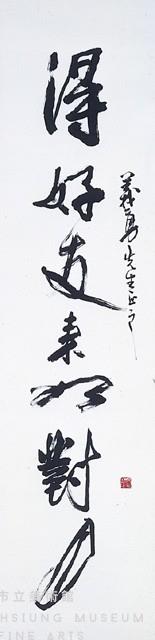 得好友來如對月
義勇先生正之
市立美術館
HSIUNG MUSEUM
FINE ARTS